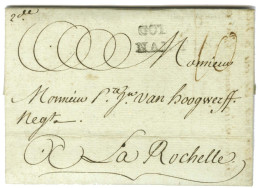 2.lle
COL
MAR
Monsieur
Monsieur P.re J.n van Hoogwerff
Negt.
La Rochelle